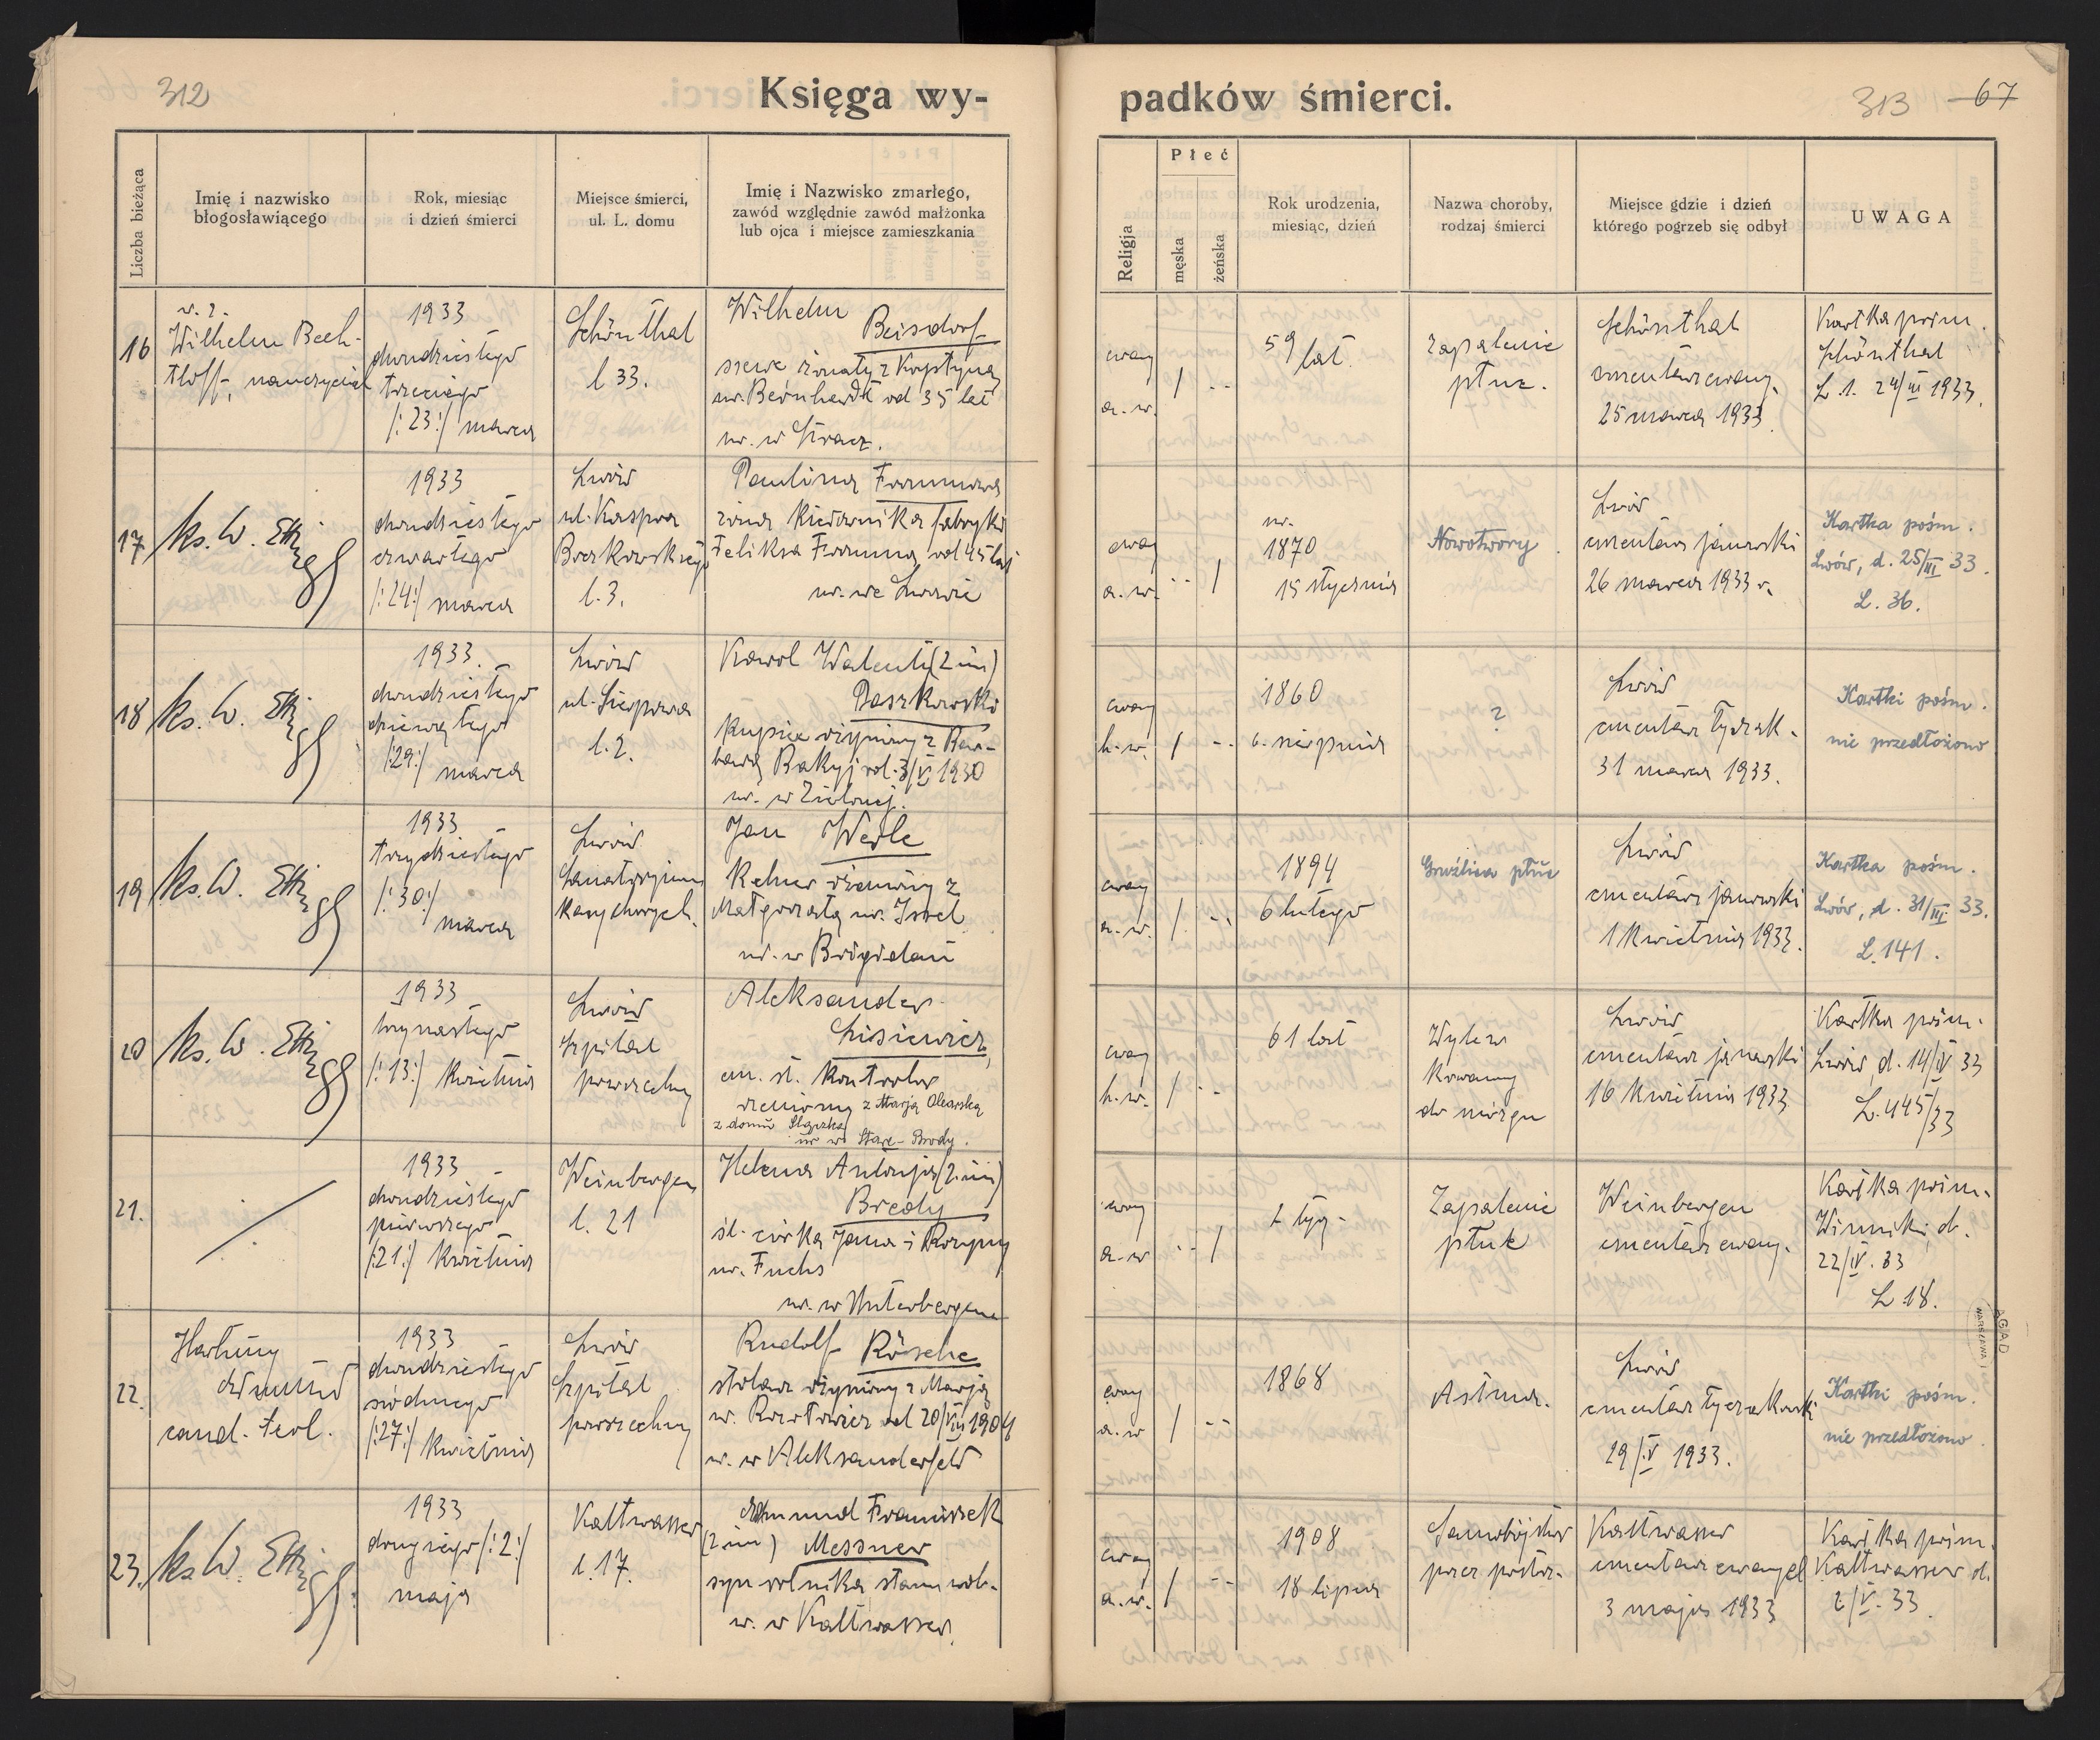 312
Księga wy-
padków śmierci.
313 67
Liczba bieżąca
Imię i nazwisko
błogosławiącego
Rok, miesiąc
i dzień śmierci
Miejsce śmierci,
ul. L. domu
Imię i Nazwisko zmarłego,
zawód względnie zawód małżonka
lub ojca i miejsce zamieszkania
Religja
Płeć
męska
żeńska
Rok urodzenia,
miesiąc, dzień
Nazwa choroby,
rodzaj śmierci
Miejsce gdzie i dzień
którego pogrzeb się odbył
UWAGA
16
Wilhelm Bech-
tloff, nauczyciel
1933
dwudziestego
trzeciego
/:23:/ marca
Schönthal
l 33.
Wilhelm
Beisdorf
szewc żonaty z Krystyną
ur. Bernhardt od 35 lat
ur. w
ewang
a. w.
/
59 lat
zapalenie
płuc.
Schönthal
cmentarz ewang.
25 marca 1933.
Kartka pośm.
Schönthal
L. 1. 24/III 1933.
17
ks. W.
1933
dwudziestego
czwartego
/:24:/ marca
Lwów
ul. Kaspra
Boczkowskiego
l. 3.
Paulina Frommowa
żona kierownika fabryki
Feliksa Fromma, od 45 lat
ur. we Lwowie
ewang
a. w.
/
ur.
1870
15 stycznia
Nowotwory
Lwów
cmentarz janowski
26 marca 1933 r.
Kartka pośm.
Lwów, d. 25/III 33.
L. 36.
18
ks. W.
1933.
dwudziestego
dziewiątego
/:29:/ marca
Lwów
ul. Sierpowa
l. 2.
Karol Walenty (2 im)
Paszkowski
kupiec
ur. w Zielonej.
ewang
h. w.
/
1860
6. sierpnia
?
Lwów
cmentarz Łyczak.
31 marca 1933.
Kartki pośm.
nie przedłożono
19
ks. W.
1933
trzydziestego
/:30:/
marca
Lwów
Sanatorjum
Kasy chorych.
Jan Werle
Kelner
Małgorzatą ur. Issel
ur. w Brigidau
ewang
a. w.
/
1894
6 lutego
Gruźlica płuc
Lwów
cmentarz janowski
1 kwietnia 1933.
Kartka pośm.
Lwów, d. 31/III 33.
L. 141.
20
ks. W.
1933
trzynastego
/:13:/ kwietnia
Lwów
Szpital
powszechny
Aleksander
Lisiewicz,
em. st. kontrolor
z Marją Olearską
z domu
ur. w Stare-Brody.
ewang
h. w.
/
61 lat
Wylew
krwawy
do mózgu
Lwów
cmentarz janowski
16 kwietnia 1933
Kartka pośm.
Lwów, d. 14/IV 33
L. 445/33
21.
1933
dwudziestego
pierwszego
/:21:/ kwietnia
Weinbergen
l. 21
Helena Antonja (2 im)
Bredy
śl. córka Jana i Rozyny
ur. Fuchs
ur. w Unterbergen
ewang
a. w
/
2 tyg.
Zapalenie
płuc
Weinbergen
cmentarz ewang.
Kartka pośm.
Winniki, d.
22/IV. 33
L 18.
22.
Hartung
Edmund
cand. teol.
1933
dwudziestego
siódmego
/:27:/ kwietnia
Lwów
Szpital
powszechny
Rudolf Rösche
stolarz
ur. w Aleksanderfeld
ewang
a. w
/
1868
Astma.
Lwów
cmentarz Łyczakowski
29/V 1933.
Kartki pośm.
nie przedłożono
AGAD
WARSZAWA
23.
ks. W.
1933
drugiego /:2:/
maja
Kaltwasser
l. 17.
Edmund Franciszek
(2 im) Messner
syn rolnika stanu woln.
ur. w Kaltwasser.
ewang
a. w.
/
1908
18 lipca
Samobójstwo
przez postrz.
Kaltwasser
cmentarz ewangel
3 maja 1933
Kartka pośm.
Kaltwasser d.
2/V. 33.